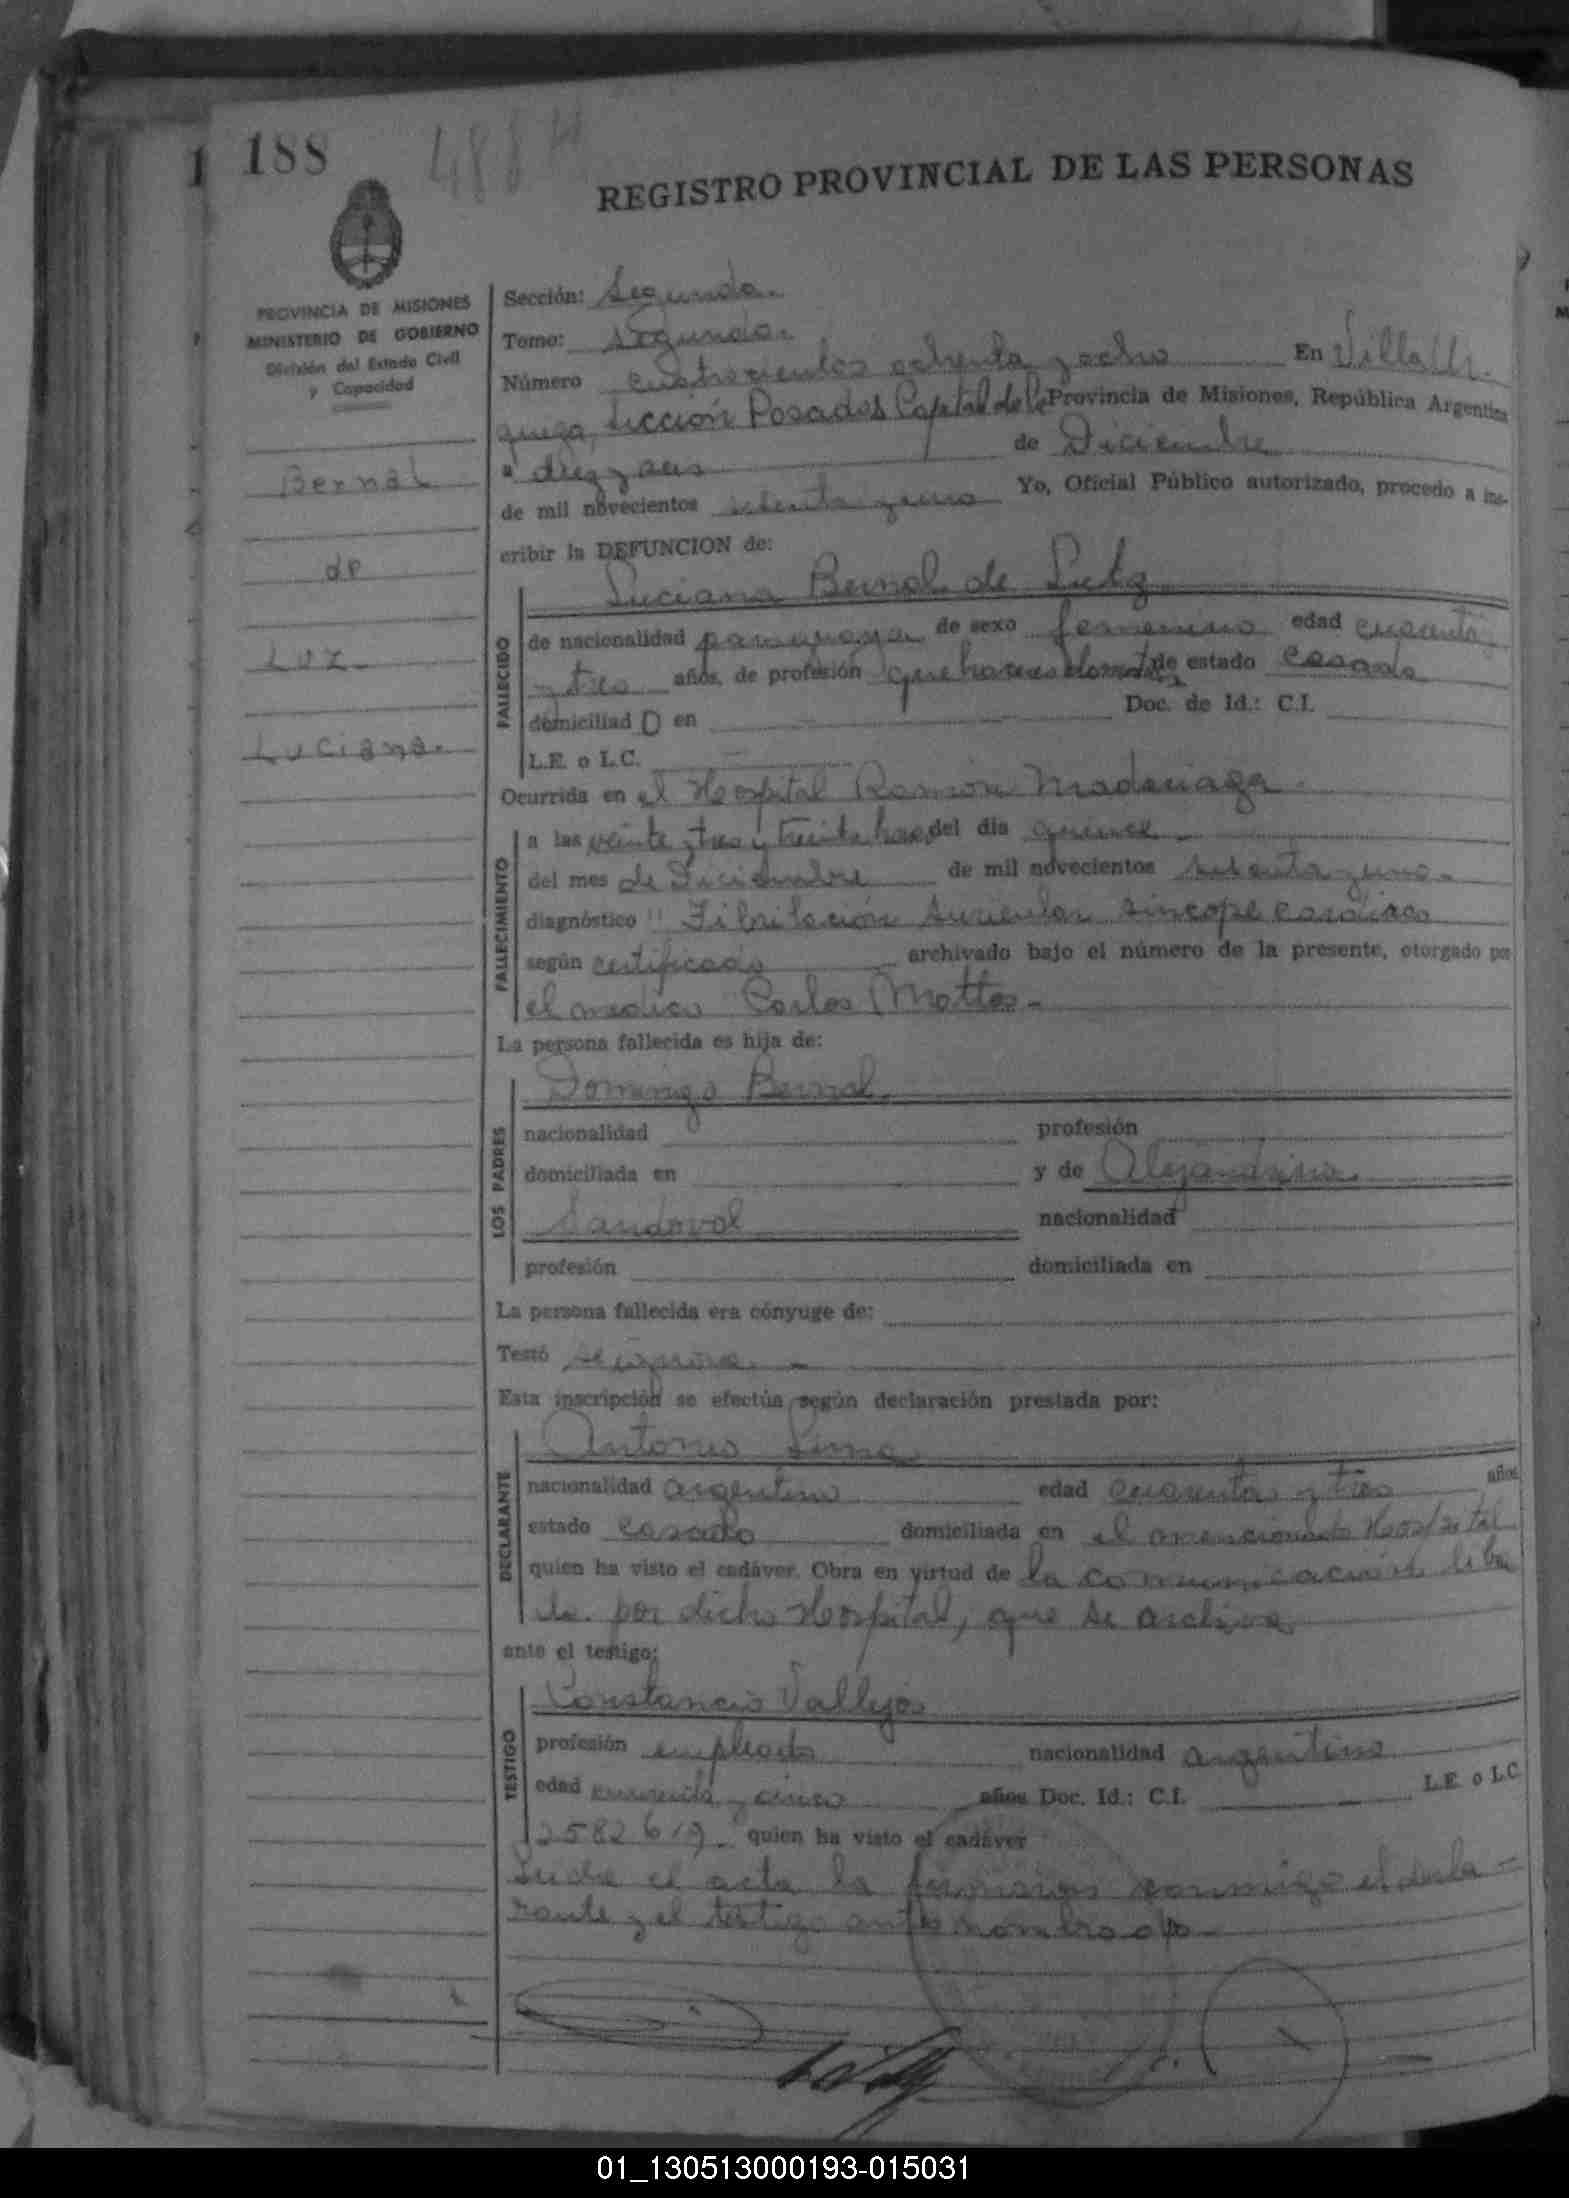 188 488 H
REGISTRO PROVINCIAL DE LAS PERSONAS
PROVINCIA DE MISIONES
MINISTERIO DE GOBIERNO
División del Estado Civil
y Capacidad
Bernal
de
Luz.
Luciana.
Sección: Segunda.
Tomo: Segundo.
Número cuatrocientos ochenta y ocho En Villa Ur.
quiza, sección Posadas Capital de la Provincia de Misiones, República Argentina
a diez y seis de Diciembre
de mil novecientos setenta y uno Yo, Oficial Público autorizado, procedo a ins-
cribir la DEFUNCION de:
Luciana Bernal de
FALLECIDO
de nacionalidad paraguaya de sexo femenino edad cuarenta
y tres años, de profesión quehaceres domést. de estado casada
domiciliad O en Doc. de Id.: C.I.
L.E. o L.C.
Ocurrida en el Hospital Ramón Madariaga.
FALLECIMIENTO
a las veinte y tres y treinta horas del día quince.
del mes de Diciembre de mil novecientos setenta y uno.
diagnóstico "Fibrilación auricular síncope cardíaco
según certificado archivado bajo el número de la presente, otorgado por
el médico Carlos Mattos.
La persona fallecida es hija de:
LOS PADRES
Domingo Bernal.
nacionalidad profesión
domiciliada en y de Alejandrina.
Sandoval nacionalidad
profesión domiciliada en
La persona fallecida era cónyuge de:
Testó se ignora.
Esta inscripción se efectúa según declaración prestada por:
DECLARANTE
Antonio
nacionalidad argentino edad cuarenta y tres años
estado casado domiciliada en el mencionado Hospital
quien ha visto el cadáver. Obra en virtud de la comunicación libra
da. por dicho Hospital, que se archiva
ante el testigo:
TESTIGO
Constancio Vallejos
profesión empleado nacionalidad argentino
edad cuarenta y cinco años Doc. Id.: C.I. L.E. o L.C.
2582619. quien ha visto el cadáver
el acta la conmigo el decla-
rante y el testigo nombrado
01_130513000193-015031